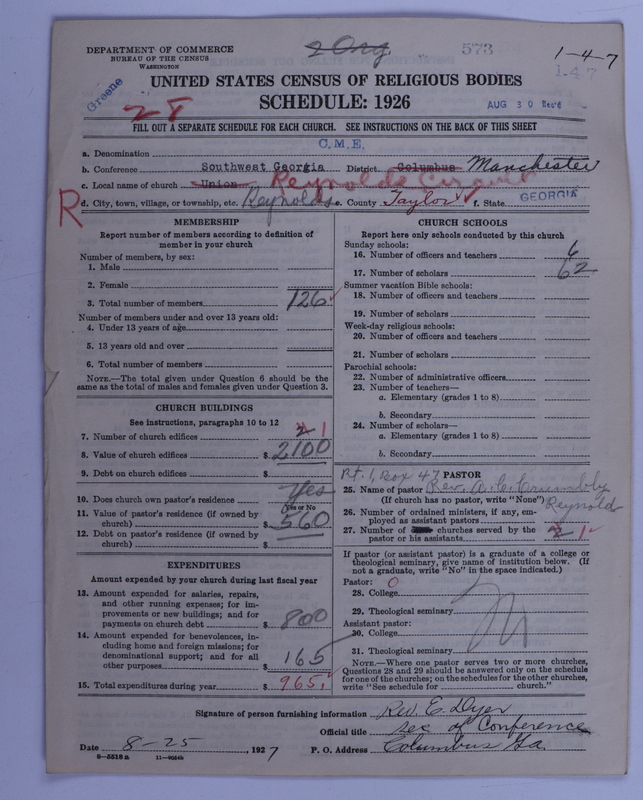 2 Org 573 1-4-7
DEPARTMENT OF COMMERCE
BUREAU OF THE CENSUS
WASHINGTON
1.47
Greene
UNITED STATES CENSUS OF RELIGIOUS BODIES
28 SCHEDULE: 1926 AUG 30 Rec'd
FILL OUT A SEPARATE SCHEDULE FOR EACH CHURCH. SEE INSTRUCTIONS ON THE BACK OF THIS SHEET
a. Denomination C.M.E.
b. Conference Southwest Georgia District Columbus Manchester
c. Local name of church Union Reynolds Circuit
R d. City, town, village, or township, etc. Reynolds e. County Taylor f. State GEORGIA
MEMBERSHIP
Report number of members according to definition of
member in your church
Number of members, by sex:
1. Male
2. Female
3. Total number of members 126
Number of members under and over 13 years old:
4. Under 13 years of age
5. 13 years old and over
6. Total number of members
NOTE.—The total given under Question 6 should be the
same as the total of males and females given under Question 3.
CHURCH BUILDINGS
See instructions, paragraphs 10 to 12
7. Number of church edifices 2 1
8. Value of church edifices $ 2100
9. Debt on church edifices $
10. Does church own pastor's residence Yes
Yes or No
11. Value of pastor's residence (if owned by
church) $ 560
12. Debt on pastor's residence (if owned by
church) $
EXPENDITURES
Amount expended by your church during last fiscal year
13. Amount expended for salaries, repairs,
and other running expenses; for im-
provements or new buildings; and for
payments on church debt $ 800
14. Amount expended for benevolences, in-
cluding home and foreign missions; for
denominational support; and for all
other purposes $ 165
15. Total expenditures during year $ 965
CHURCH SCHOOLS
Report here only schools conducted by this church
Sunday schools:
16. Number of officers and teachers 6
17. Number of scholars 62
Summer vacation Bible schools:
18. Number of officers and teachers
19. Number of scholars
Week-day religious schools:
20. Number of officers and teachers
21. Number of scholars
Parochial schools:
22. Number of administrative officers
23. Number of teachers—
a. Elementary (grades 1 to 8)
b. Secondary
24. Number of scholars—
a. Elementary (grades 1 to 8)
b. Secondary
Rt. 1, Box 47 PASTOR
25. Name of pastor Rev. A. C. Crumbly
(If church has no pastor, write "None") Reynold
26. Number of ordained ministers, if any, em-
ployed as assistant pastors
27. Number of churches served by the
pastor or his assistants 2 1
If pastor (or assistant pastor) is a graduate of a college or
theological seminary, give name of institution below. (If
not a graduate, write "No" in the space indicated.)
Pastor: 0
28. College
29. Theological seminary
Assistant pastor:
30. College
31. Theological seminary
NOTE.—Where one pastor serves two or more churches,
Questions 28 and 29 should be answered only on the schedule
for one of the churches; on the schedules for the other churches,
write "See schedule for church."
Signature of person furnishing information Rev. E. Dyer
Official title Sec of Conference
Date 8-25, 1927 P. O. Address Columbus Ga
8—5518a